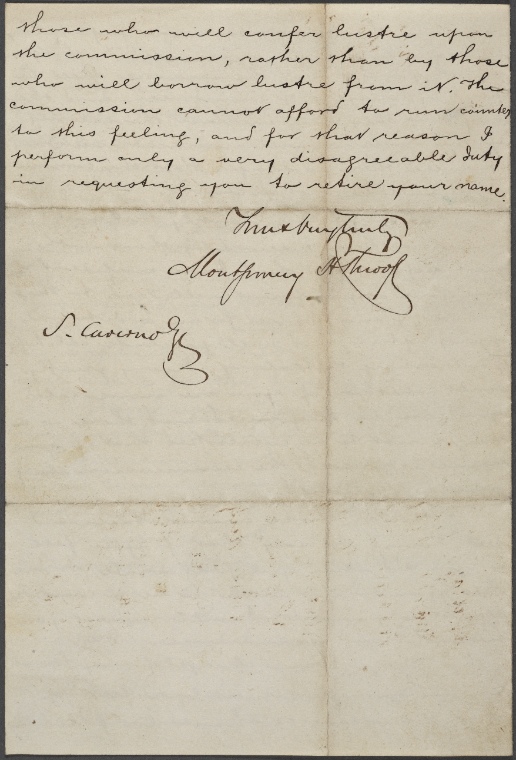 those who will confer lustre upon
the commission, rather than by those
who will borrow lustre from it. The
commission cannot afford to run counter
to this feeling, and for that reason I
perform only a very disagreeable duty
in requesting you to retire your name.
Yours very truly
Montgomery H Throop
S. Caverno Esq